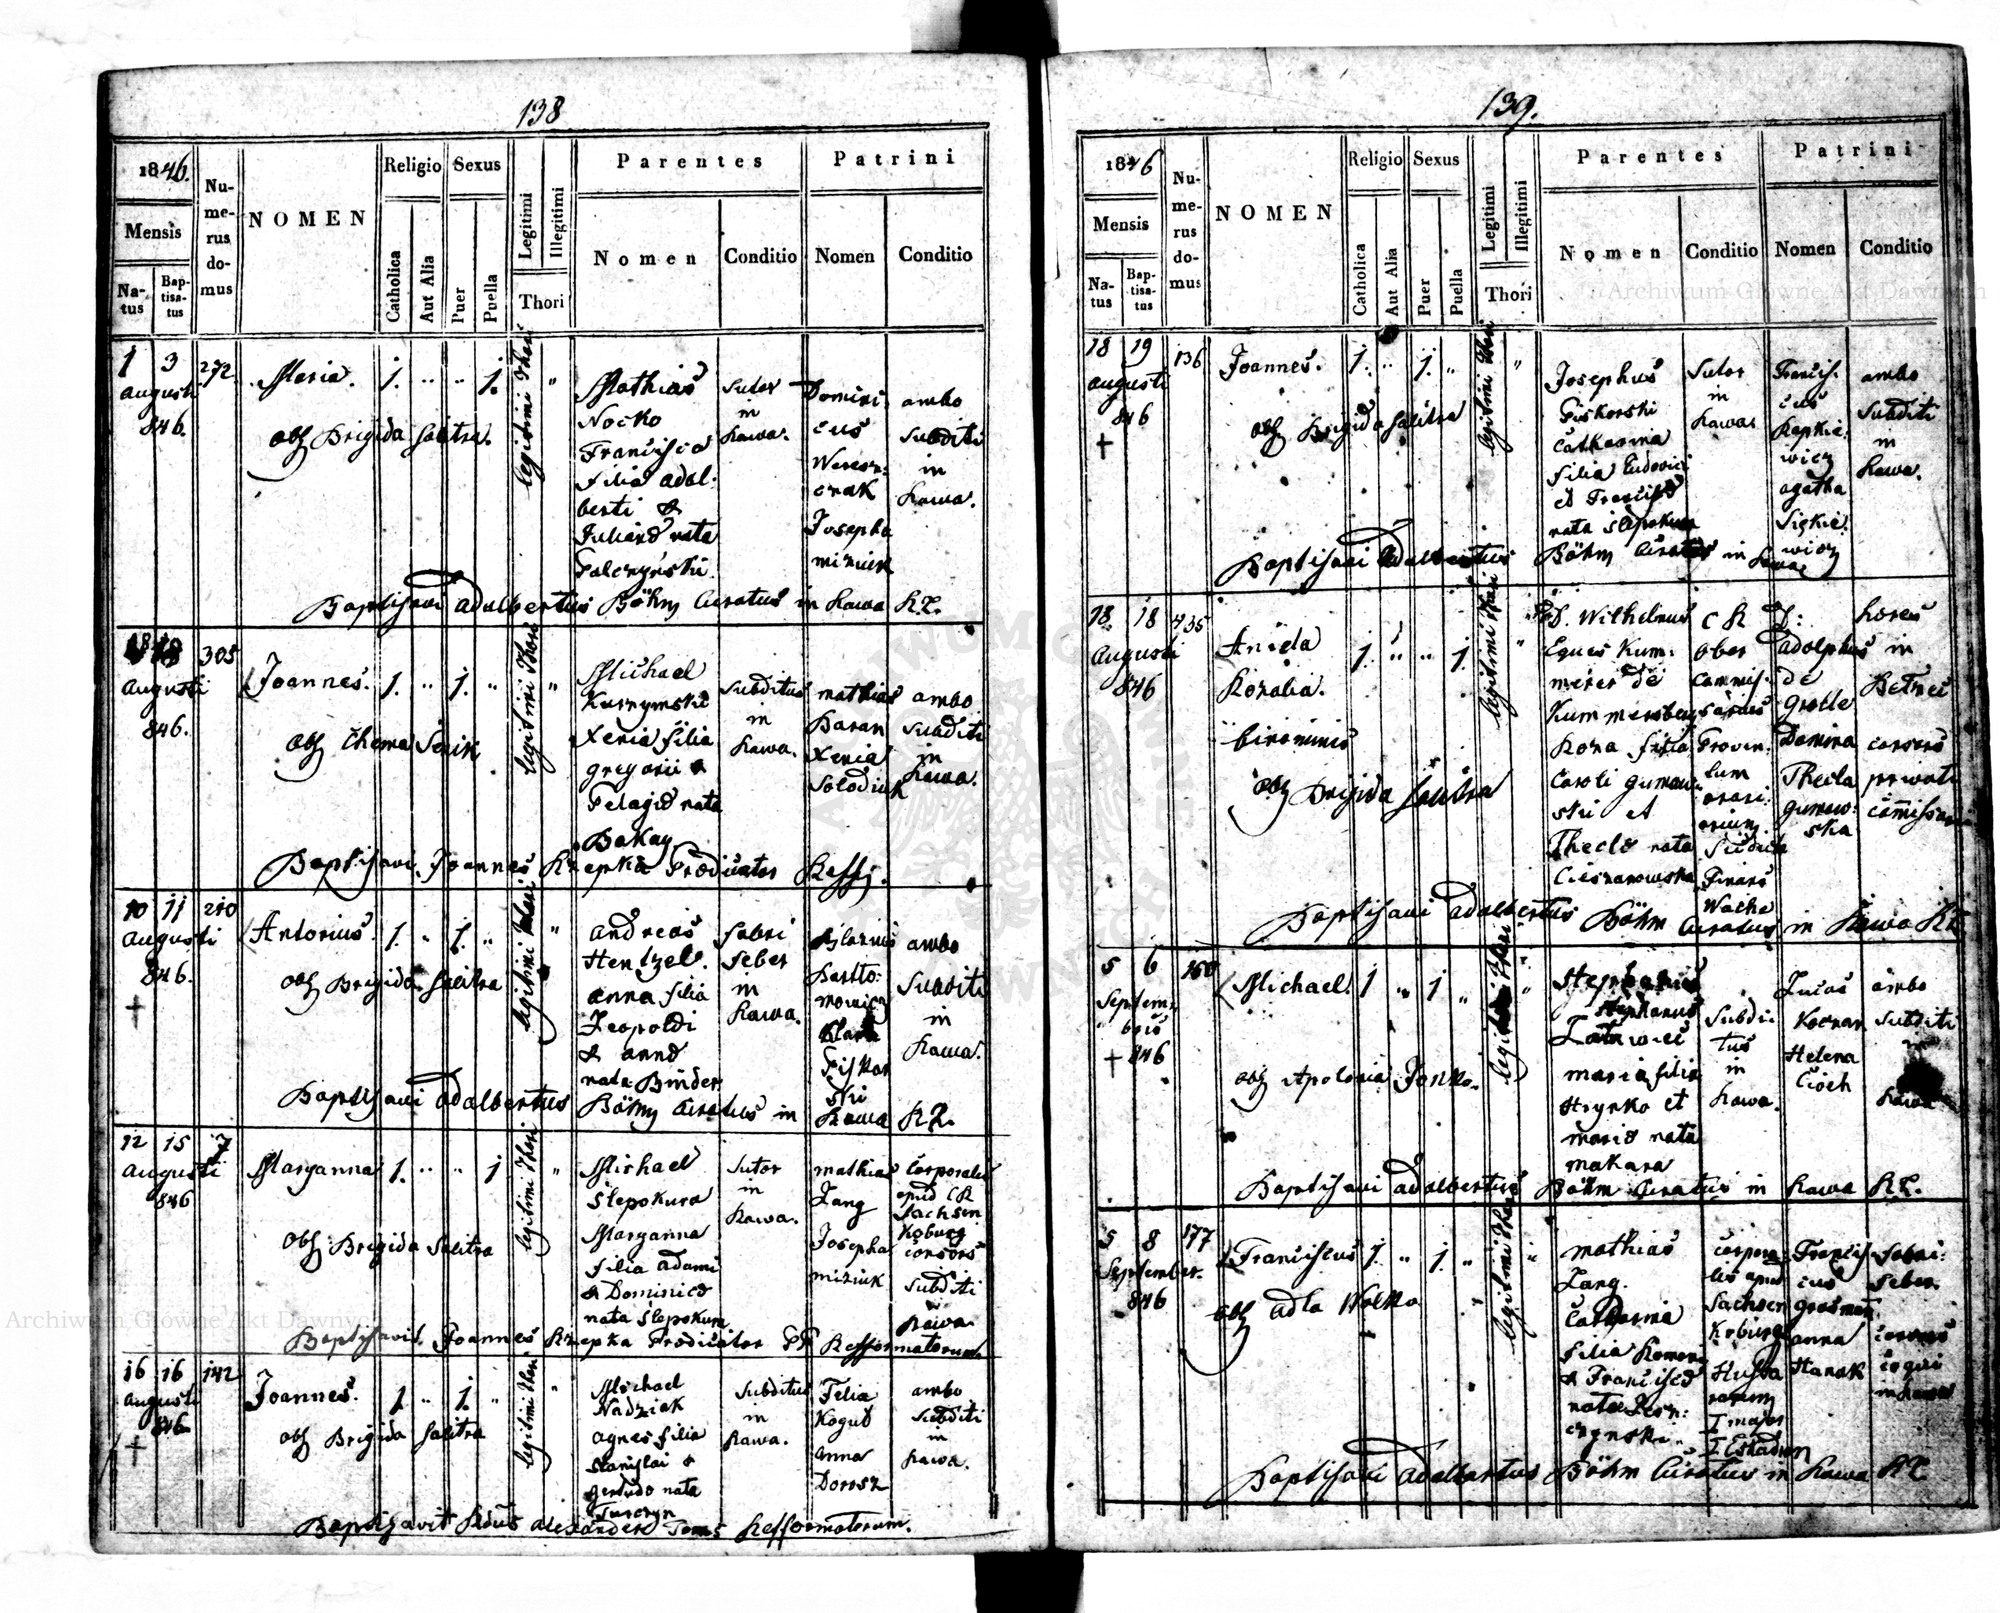 138
1846.
Mensis
Na-
tus
Bap-
tisa-
tus
Nu-
me-
rus
do-
mus
NOMEN
Religio
Catholica
Aut Alia
Sexus
Puer
Puella
Legitimi
Illegitimi
Thori
Parentes
Nomen
Conditio
Patrini
Nomen
Conditio
1 3 272
Augusti
846.
Maria.
1. " " 1.
legitimi thori "
obs Brigida Salitra.
Mathias
Nocko
Francisca
filia Adal-
berti &
Julianæ nata
Falczyński.
Sutor
in
Rawa.
Domini-
cus
Weresz-
czak
Josepha
miziuk
ambo
subditi
in
Rawa.
Baptisavi Adalbertus Böhm Curatus in Rawa
305
Augusti
846.
Joannes.
1. " 1. "
legitimi Thori "
Michael
Xenia filia
gregorii &
Pelagiæ nata
Bakay
subditus
in
Rawa.
mathias
Baran
Xenia
Solodiuk
ambo
subditi
in
Rawa.
Baptisavi Joannes Krzepka Prædicator Reff:
10 11 210
Augusti
846.
†
Antonius.
1. " 1. "
legitimi thori "
obs Brigida Salitra
Andreas
Hentzel.
anna filia
Leopoldi
& annæ
nata Binder
fabri
feber
in
Rawa.
Bartto-
mowicz
ambo
subditi
in
Rawa.
Baptisavi Adalbertus Böhm Curatus in Rawa
12 15 7
Augusti
846
Maryanna
1. " " 1
legitimi thori "
obs Brigida Salitra
Michael
Slepokura
Maryanna
filia adami
& Dominicæ
nata Slepokura
Sutor
in
Rawa.
mathias
Lang
Josepha
miziuk
Corporalis
apud CR
Sachsen
Koburg
consors
subditi
Rawa
Baptisavit Joannes Krzepka Prædicator PP Refformatorum.
16 16 142
Augusti
846
†
Joannes.
1. " 1. "
legitimi thori "
obs Brigida Salitra
Michael
Nadziak
agnes filia
Stanislai &
nata
Turczyn
Subditus
in
Rawa.
Felia
Kogut
Anna
Dorosz
ambo
subditi
in
Rawa.
Baptisavit Refformatorum.
139.
1846
Mensis
Na-
tus
Bap-
tisa-
tus
Nu-
me-
rus
do-
mus
NOMEN
Religio
Catholica
Aut Alia
Sexus
Puer
Puella
Legitimi
Illegitimi
Thori
Parentes
Nomen
Conditio
Patrini
Nomen
Conditio
18 19 136
Augusti
846
†
Joannes.
1. " 1. "
legitimi thori "
obs Brigida Salitra
Josephus
Piskorski
Catharina
filia Ludovici
et Franciscæ
nata Slepokura
Sutor
in
Rawa.
Francis-
cus
Kapkie-
wicz
agatha
Sickie-
wicz
ambo
subditi
in
Rawa.
Baptisavi Adalbertus Böhm Curatus in Rawa
18 18 435
Augusti
846
Aniela
Rozalia.
binominis
1. " " 1.
legitimi thori "
obs Brigida Salitra
Wilhelmus
Eques Kum-
merer de
Kummersberg
Roza filia
Caroli Gumow-
ski et
Theclæ nata
Cieszanowska
C R
Ober
Commis-
sarius
Finanz
Wache
D:
adolphus
de
Grotte
Domina
Thecla
gumow-
ska
hæres
in
consors
privati
Baptisavi Adalbertus Böhm Curatus in Rawa
5 6 160
Septem-
bris
† 846
Michael.
1 " 1 "
legitimi thori "
obs Apolonia Jonko.
Stephanus
Latawiec
maria filia
Hrynko et
mariæ nata
makara
Subdi-
tus
in
Rawa.
Lucas
Koczan
Helena
Cioch
ambo
subditi
in
Rawa
Baptisavi Adalbertus Böhm Curatus in Rawa
5 8 177
September.
846
Franciscus
1. " 1 "
legitimi thori "
obs Adla Wolko
mathias
Lang.
Catharina
filia
& Franciscæ
nata
Corpora-
lis apud
Sachsen
Koburg
I major
I Eskadron
Francis-
cus
Grosman
anna
Hanak
Fabri-
feber.
consors
in Rawa
Baptisavi Adalbertus Böhm Curatus in Rawa
Archiwum Główne Akt Dawnych
Archiwum Główne Akt Dawnych